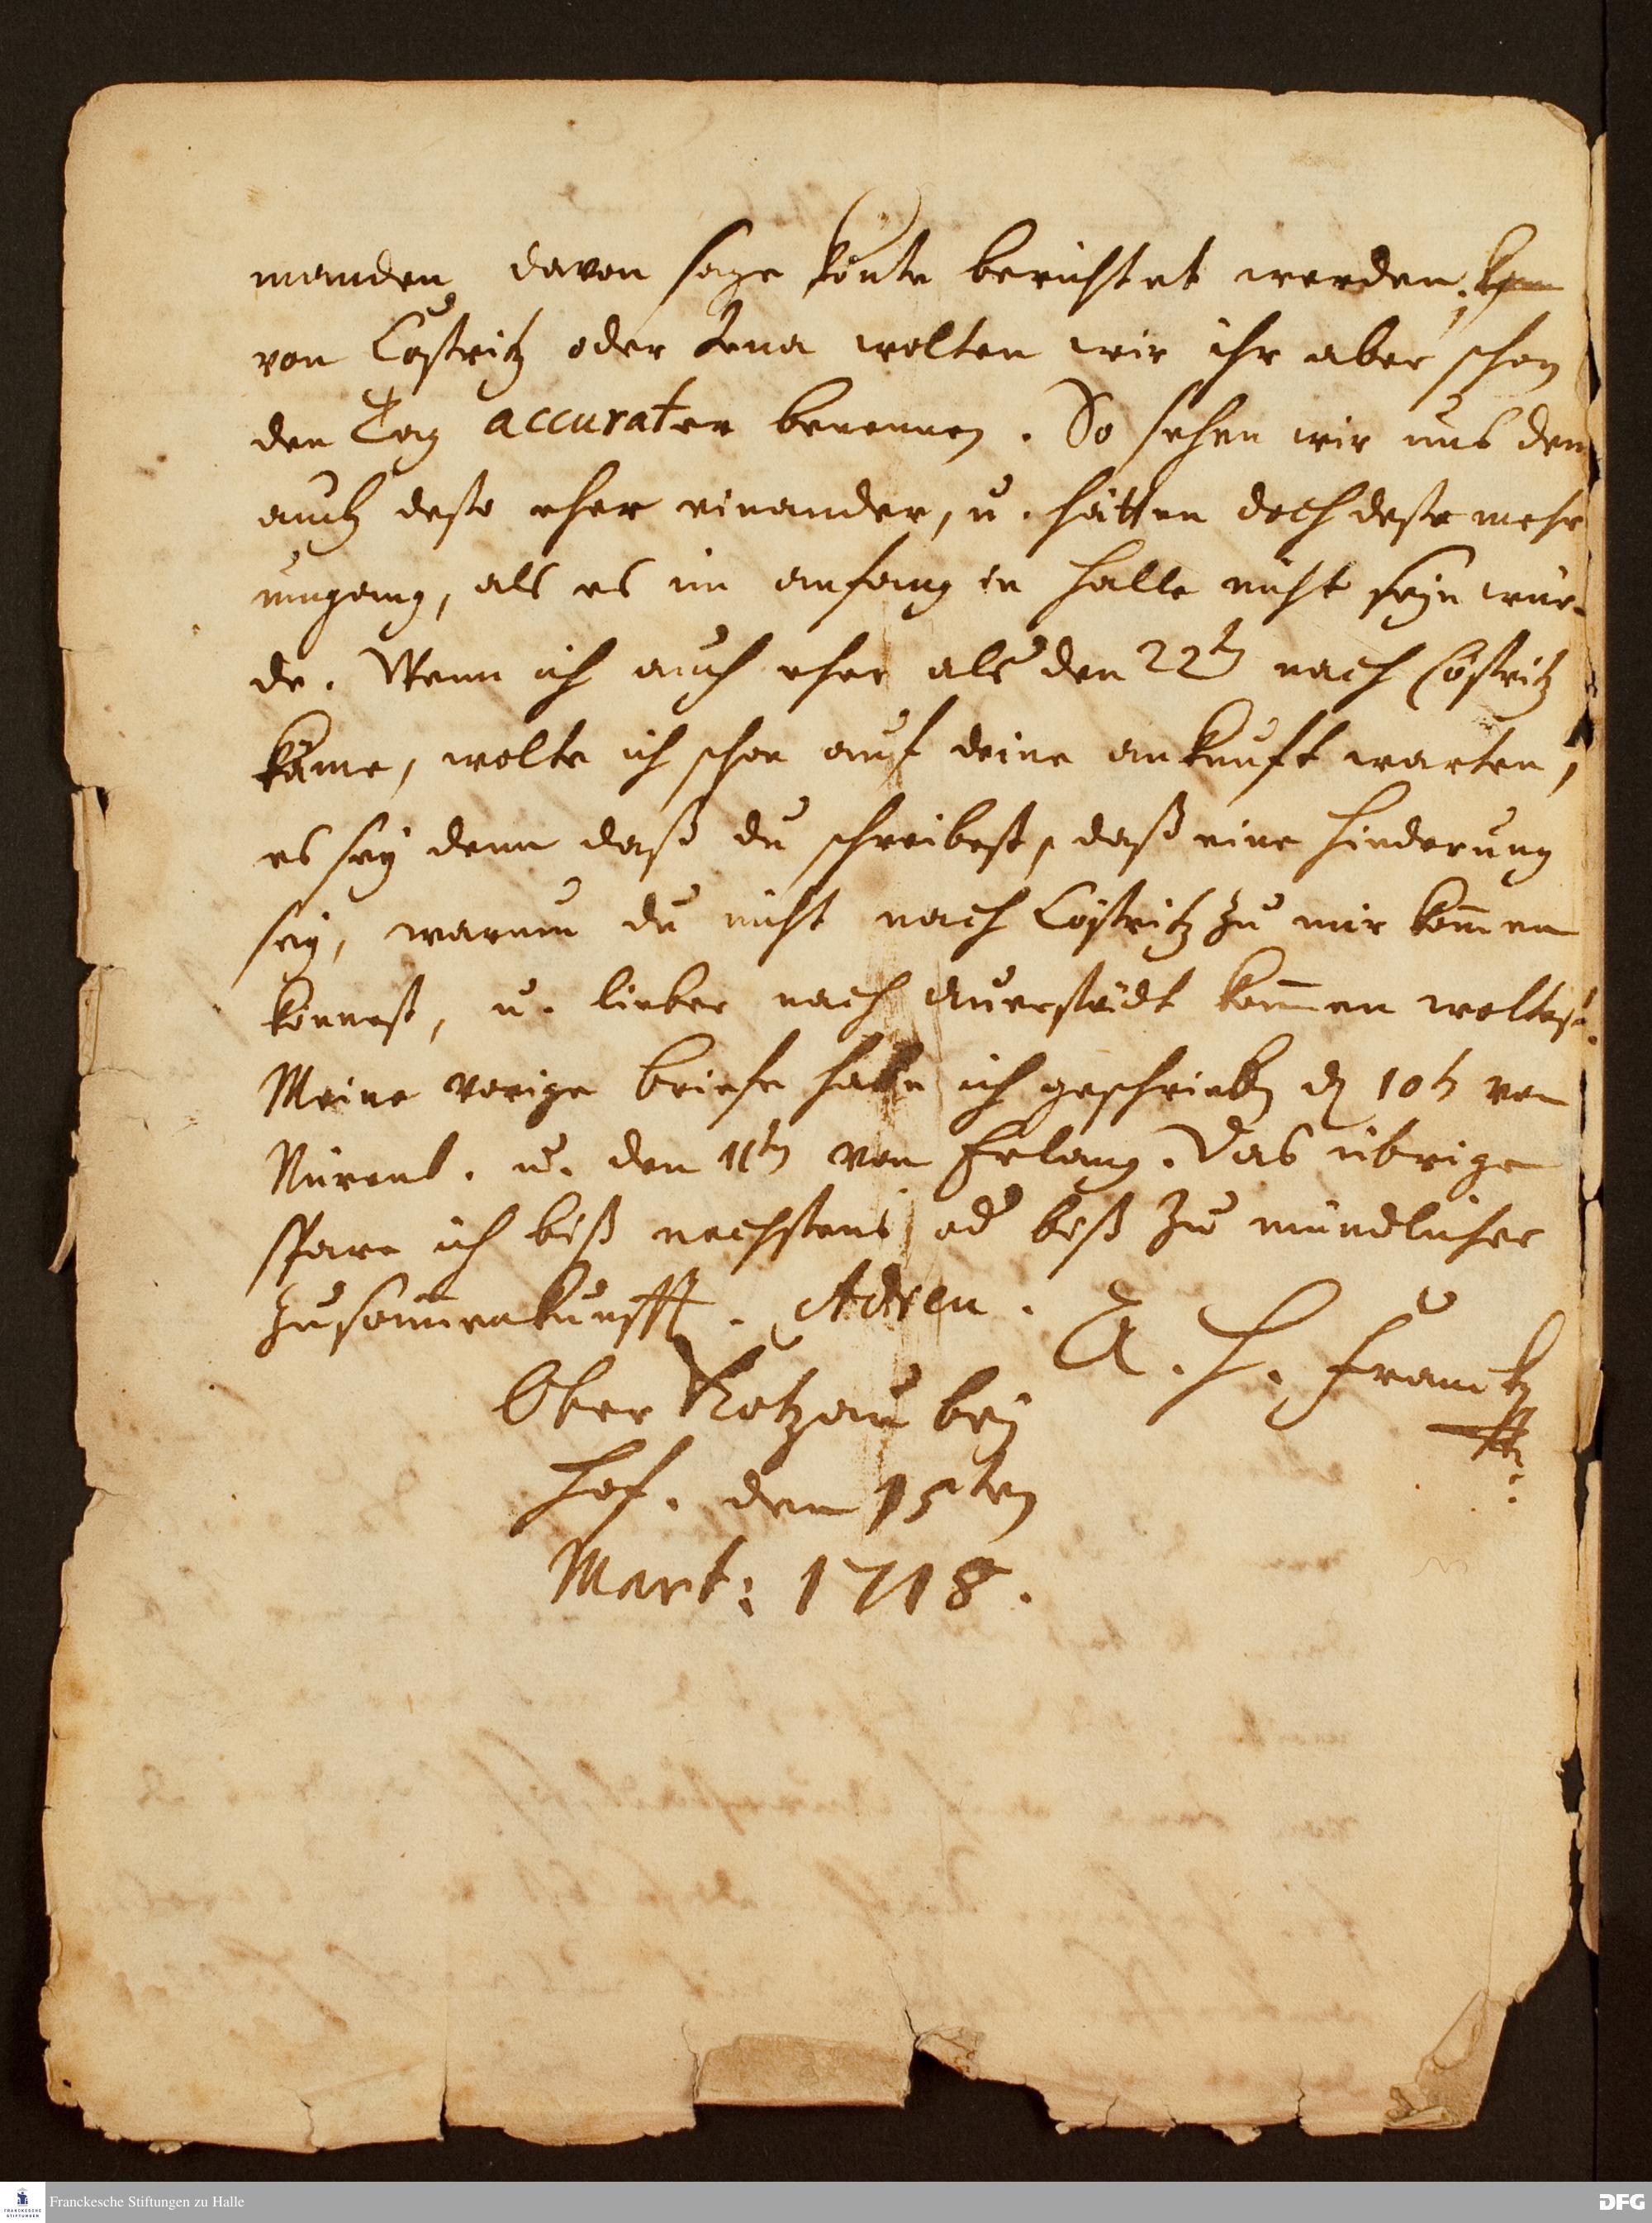 manden davon sage könte berichtet werden;
von Cöstritz oder Jena wolten wir ihr aber schon
den Tag accurater benennen. So sehen wir uns den
auch desto eher einander, u. hätten doch desto mehr
umgang, als es im anfang in Halle nicht seyn wür-
de. Wenn ich auch eher als den 22ten nach Cöstritz
käme, wolte ich schon auf deine ankunft warten,
es sey denn daß du schreibest, daß eine Hinderung
sey, warum du nicht nach Cöstritz zu mir kom̄en
könnest, u. lieber nach Auerstädt kom̄en woltest.
Meine vorige briefe habe ich geschrieben d. 10t von
Nürenb. u. den 11ten von Erlang. Das übrige
spare ich biß nechstens od biß zu mündlicher
zusam̄enkunfft. Adieu.
A. H. Franck
Ober Kotzau bey
Hof. den 15ten
Mart: 1718.
Franckesche Stiftungen zu Halle
FRANCKESCHE STIFTUNGEN
DFG